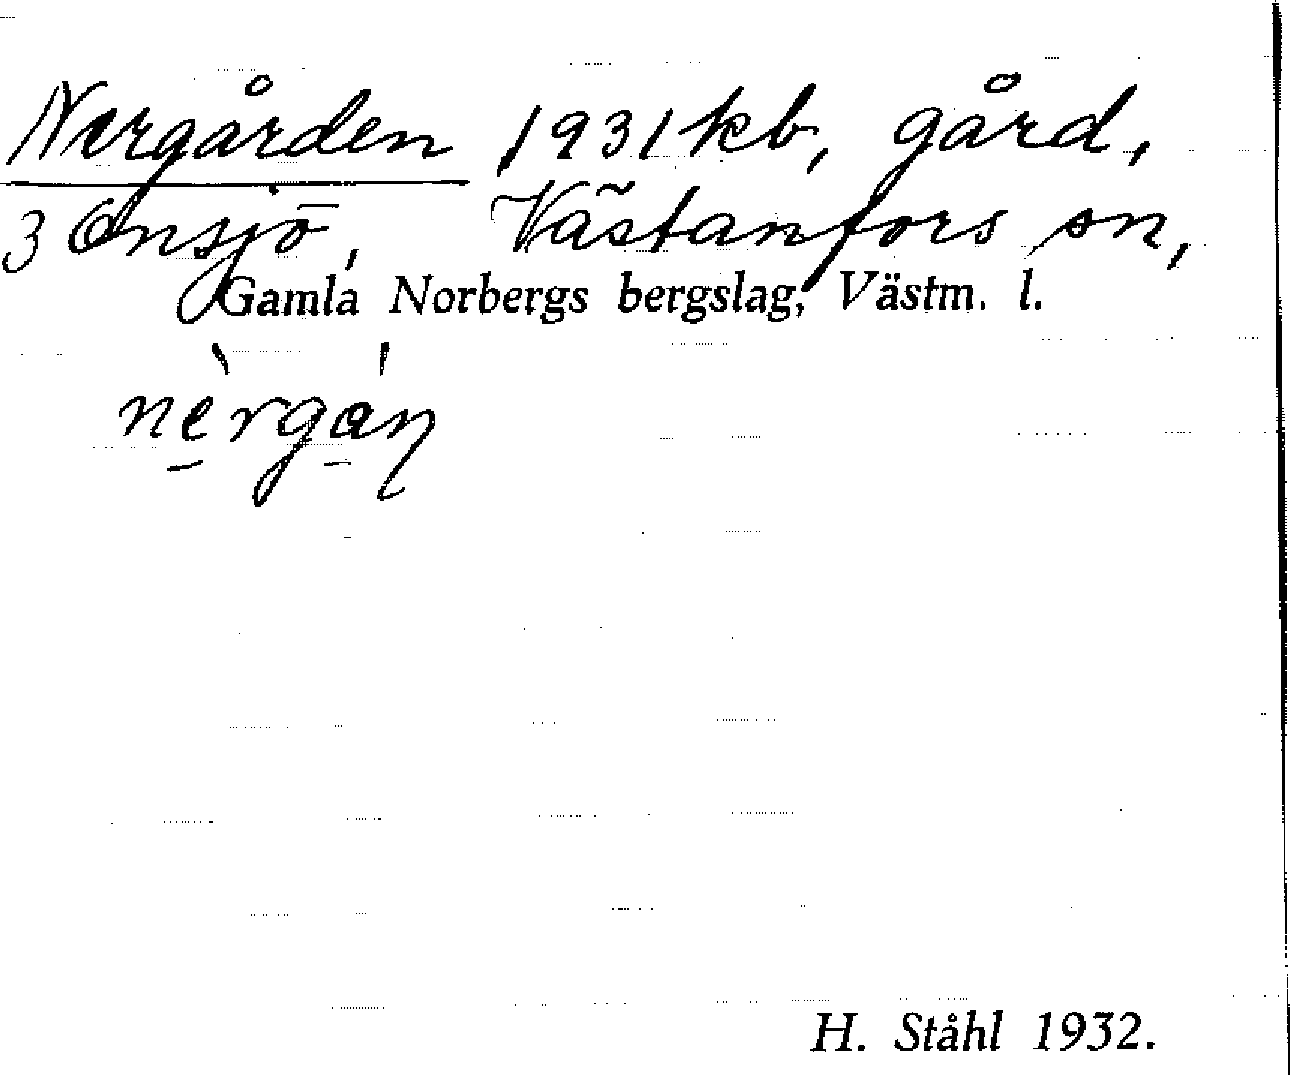 Nergården 1931 kb, gård,
3 Onsjö, Västanfors sn,
Gamla Norbergs bergslag, Västm. l.
nè̱rgá̱ṇ
H. Ståhl 1932.